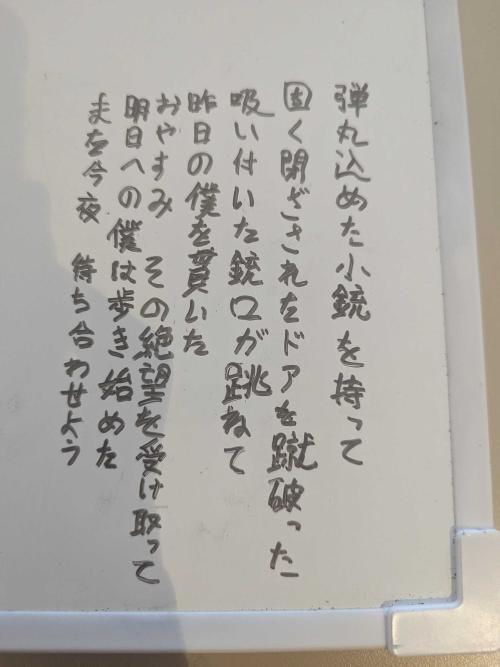 弾丸込めた小銃を持って
固く閉ざされたドアを蹴破った
吸い付いた銃口が跳ねて
昨日の僕を貫いた
おやすみ その絶望を受け取って
明日への僕は歩き始めた
また今夜 待ち合わせよう